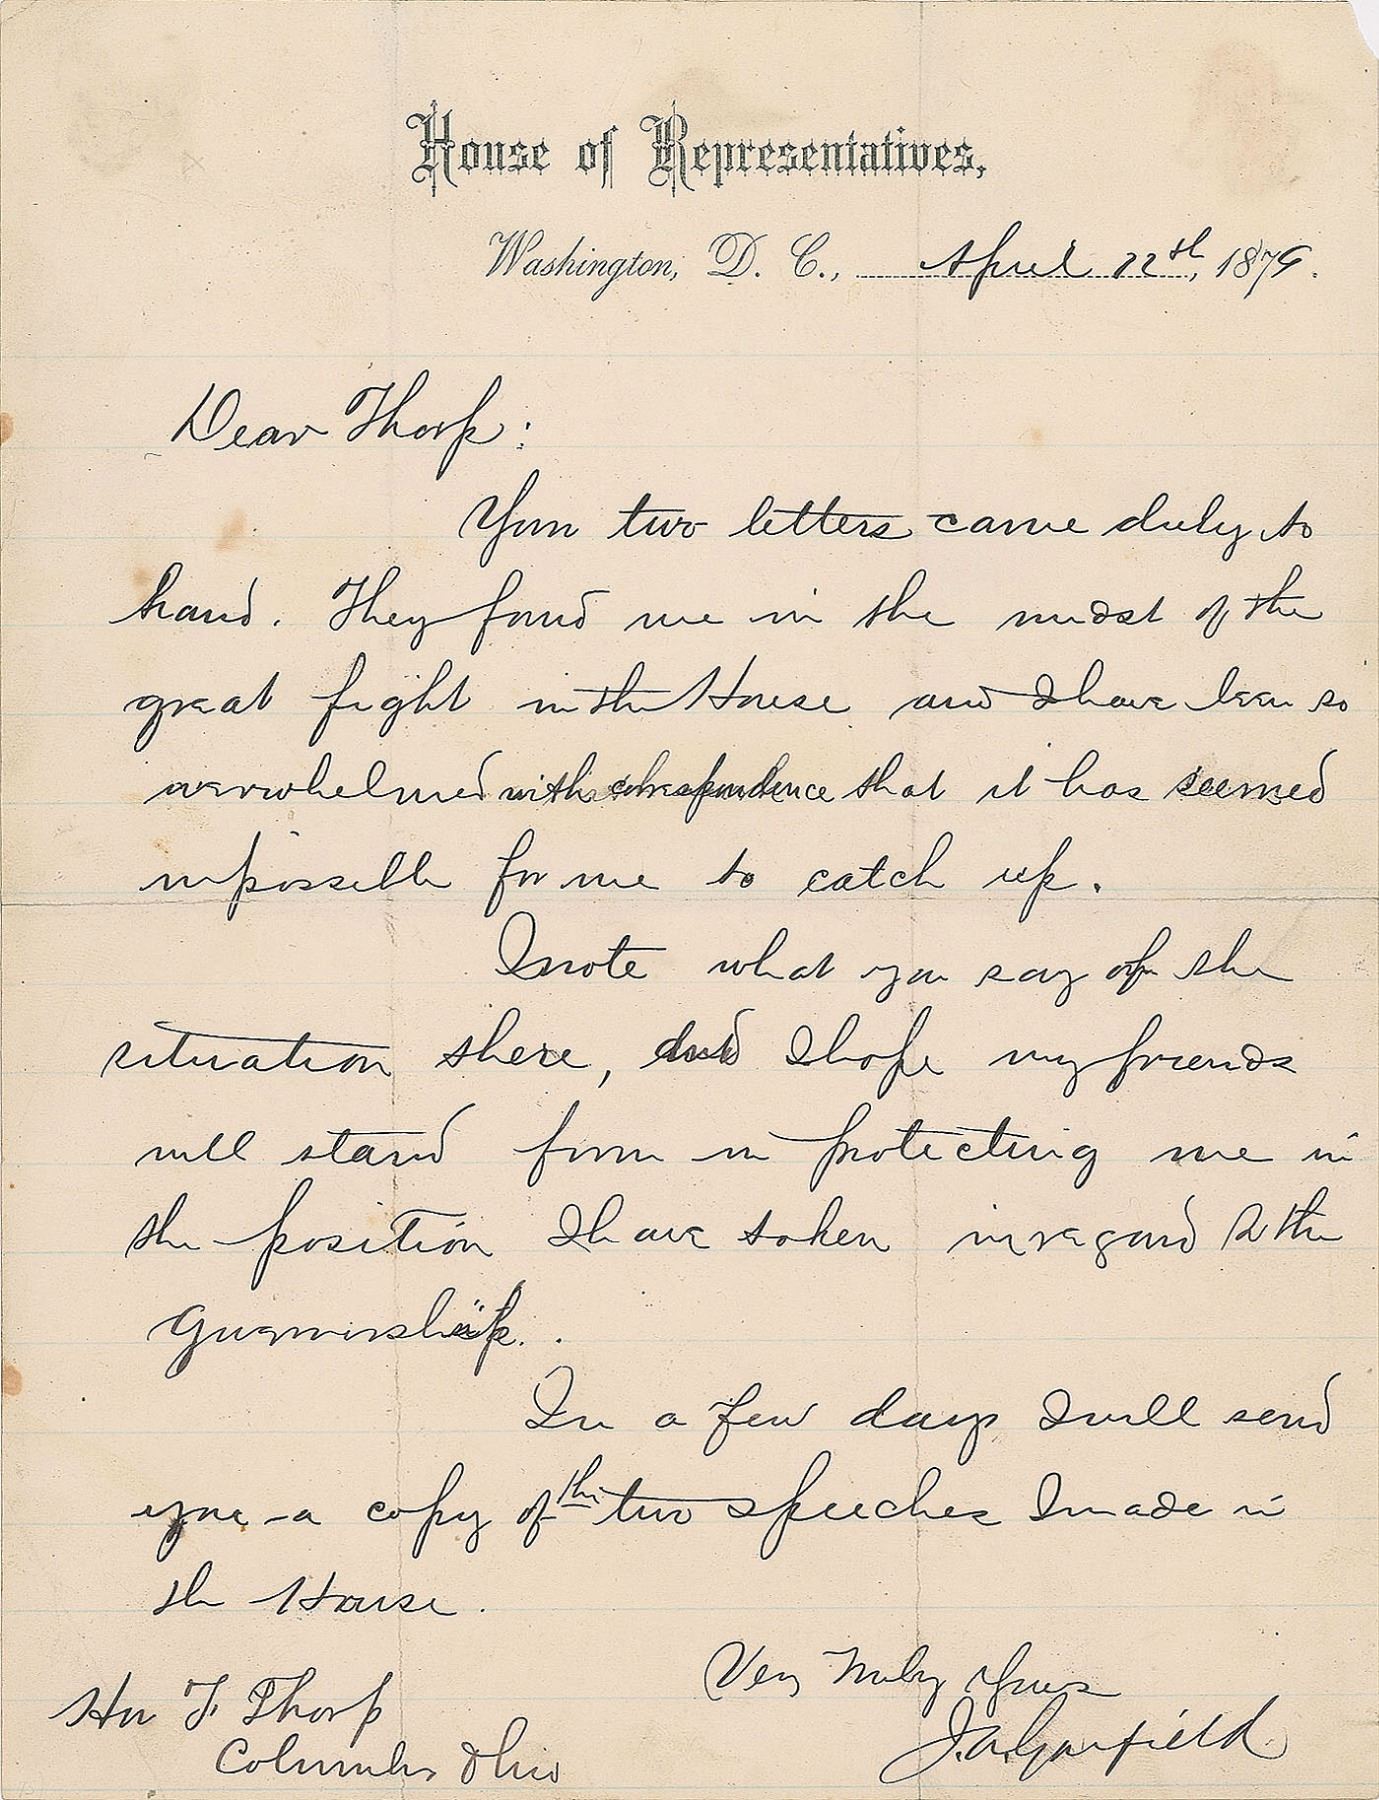 House of Representatives,
Washington, D. C., April 12th, 1879.
Dear Thorp:
Your two letters came duly to
hand. They found me in the midst of the
great fight in the House and I have been so
overwhelmed with correspondence that it has seemed
impossible for me to catch up.
I note what you say of the
situation there, and I hope my friends
will stand firm in protecting me in
the position I have taken in regard to the
Governorship.
In a few days I will send
you a copy of the two speeches I made in
the House.
Very Truly Yours
J. A. Garfield
Hon F. Thorp
Columbus Ohio